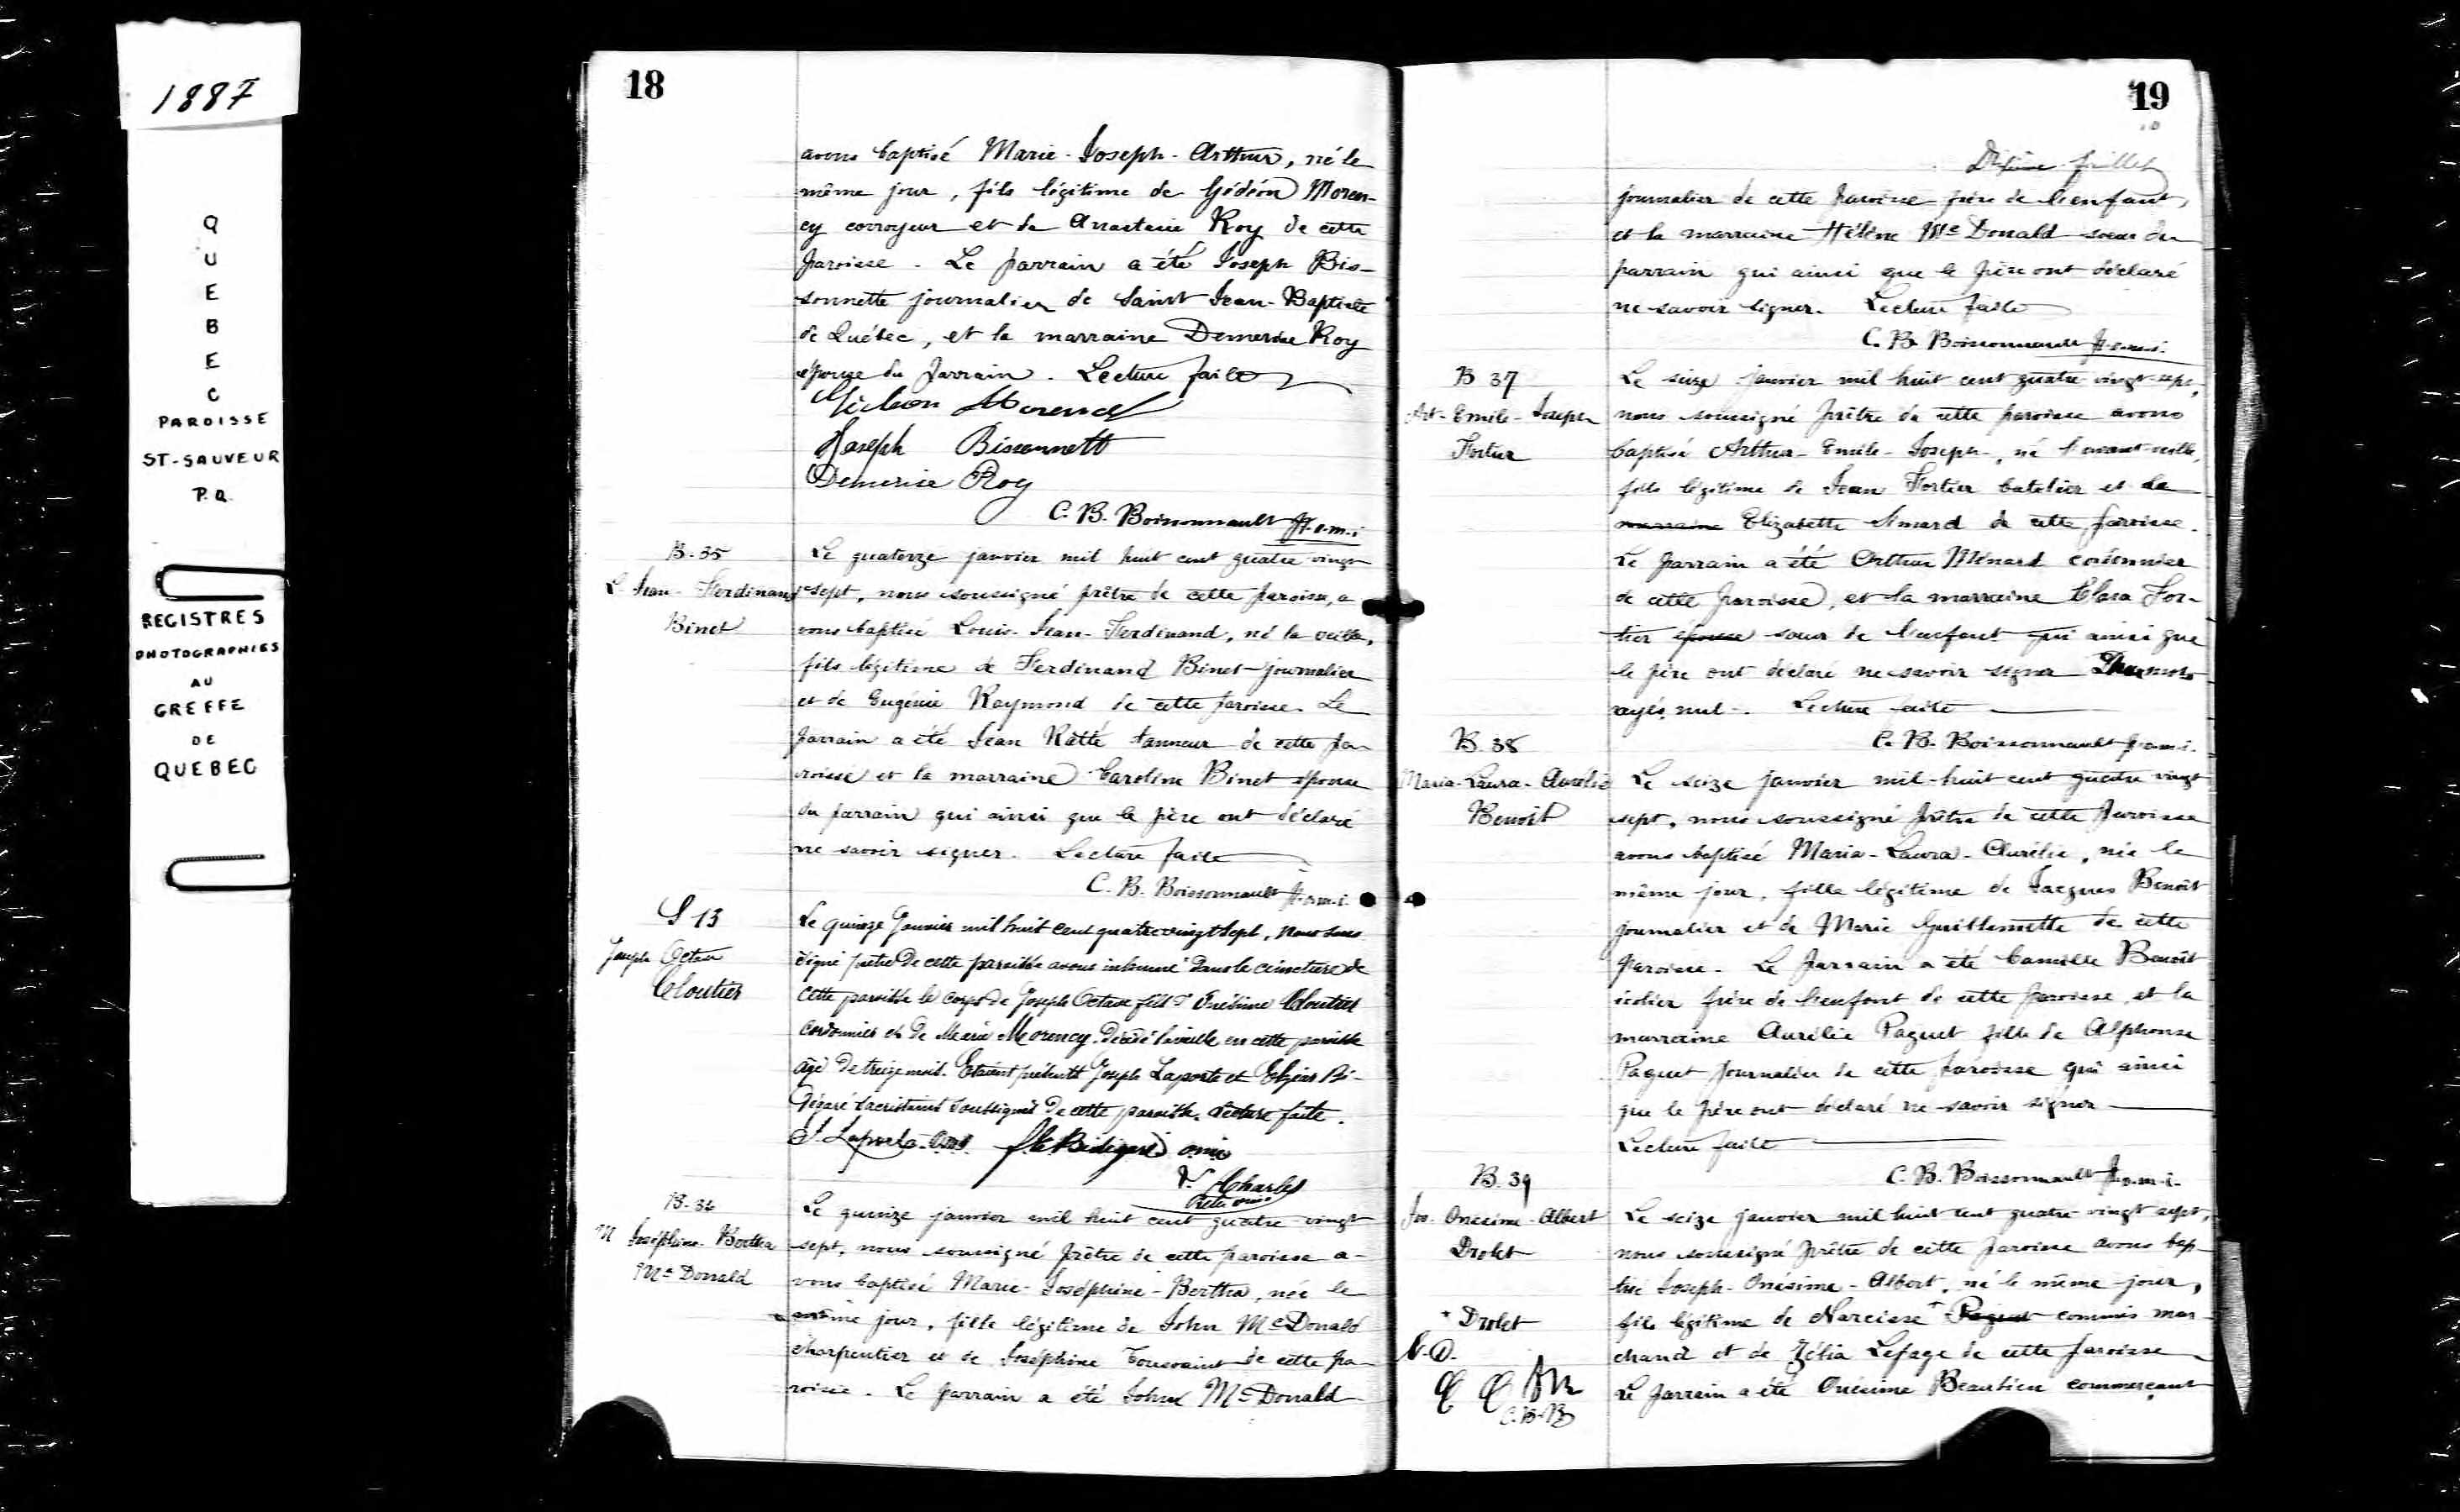 1887
QUEBEC
PAROISSE
ST-SAUVEUR
P.Q.
REGISTRES
PHOTOGRAPHIES
AU
GREFFE
DE
QUEBEC
18
avons baptisé Marie-Joseph-Arthur, né le
même jour, fils légitime de Gédéon Moren-
cy corroyeur et de Anastasie Roy de cette
paroisse. Le parrain a été Joseph Bis-
sonnette journalier de Saint Jean-Baptiste
de Québec, et la marraine Demerise Roy
épouse du parrain. Lecture faite
Gédéon Morency
Joseph Bissonnett
Demerise Roy
C. B. Boissonnault p.o.m.i.
B. 35
L. Jean-Ferdinand
Binet
Le quatorze janvier mil huit cent quatre vingt
sept, nous soussigné prêtre de cette paroisse, a
vons baptisé Louis-Jean-Ferdinand, né la veille,
fils légitime de Ferdinand Binet journalier
et de Eugénie Raymond de cette paroisse. Le
parrain a été Jean Rátté tanneur de cette pa
roisse et la marraine Caroline Binet épouse
du parrain qui ainsi que le père ont déclaré
ne savoir signer. Lecture faite
C. B. Boissonnault p.o.m.i.
S 13
Joseph Octave
Cloutier
Le quinze Janvier mil huit cent quatrevingt sept, nous sous
signé prêtre de cette paroisse avons inhumé dans le cimetière de
cette paroisse le corps de Joseph Octave fils d'Onésime Cloutier
cordonnier et de Marie Morency, décédé la veille en cette paroisse
âgé de treize mois. Etaient présents Joseph Laporte et Elzéar Bi-
dégaré sacristains soussignés de cette paroisse. Lecture faite.
J. Laporte o.m.i. Bédégaré o.m.i.
F. Charles
Ptre o.m.i.
B. 36
M Joséphine-Bertha
Mc Donald
Le quinze janvier mil huit cent quatre-vingt
sept, nous soussigné prêtre de cette paroisse a-
vons baptisé Marie-Joséphine-Bertha, née le
même jour, fille légitime de John McDonald
charpentier et de Joséphine Toussaint de cette pa-
roisse. Le parrain a été John McDonald
19
journalier de cette paroisse père de l'enfant,
et la marraine Hélène McDonald soeur du
parrain qui ainsi que le père ont déclaré
ne savoir signer. Lecture faite
C. B. Boissonnault p.o.m.i.
B 37
Art-Emile-Joseph
Fortier
Le seize janvier mil huit cent quatre vingt-sept,
nous soussigné prêtre de cette paroisse avons
baptisé Arthur-Emile-Joseph, né l'avant-veille,
fils légitime de Jean Fortier batelier et de
marraine Elizabeth Simard de cette paroisse.
Le parrain a été Arthur Ménard cordonnier
de cette paroisse, et la marraine Clara For-
tier épouse soeur de l'enfant qui ainsi que
le père ont déclaré ne savoir signer mots
rayés nul. Lecture faite
C. B. Boissonnault p.o.m.i.
B 38
Maria-Laura-Aurélie
Benoît
Le seize janvier mil-huit cent quatre vingt
sept, nous soussigné prêtre de cette paroisse
avons baptisé Maria-Laura-Aurélie, née le
même jour, fille légitime de Jacques Benoît
journalier et de Marie Guillemette de cette
paroisse. Le parrain a été Camille Benoît
écolier frère de l'enfant de cette paroisse, et la
marraine Aurélie Paquet fille de Alphonse
Paquet journalier de cette paroisse qui ainsi
que le père ont déclaré ne savoir signer
Lecture faite
C. B. Boissonnault p.o.m.i.
B. 39
Jos. Onésime-Albert
Drolet
Le seize janvier mil huit cent quatre vingt sept,
nous soussigné prêtre de cette paroisse avons bap
tisé Joseph-Onésime-Albert, né le même jour,
fils légitime de Narcisse + Paquet commis mar-
chand et de Zélia Lepage de cette paroisse
Le parrain a été Onésime Beaulieu commerçant
+ Drolet
N.D.
C.B.B